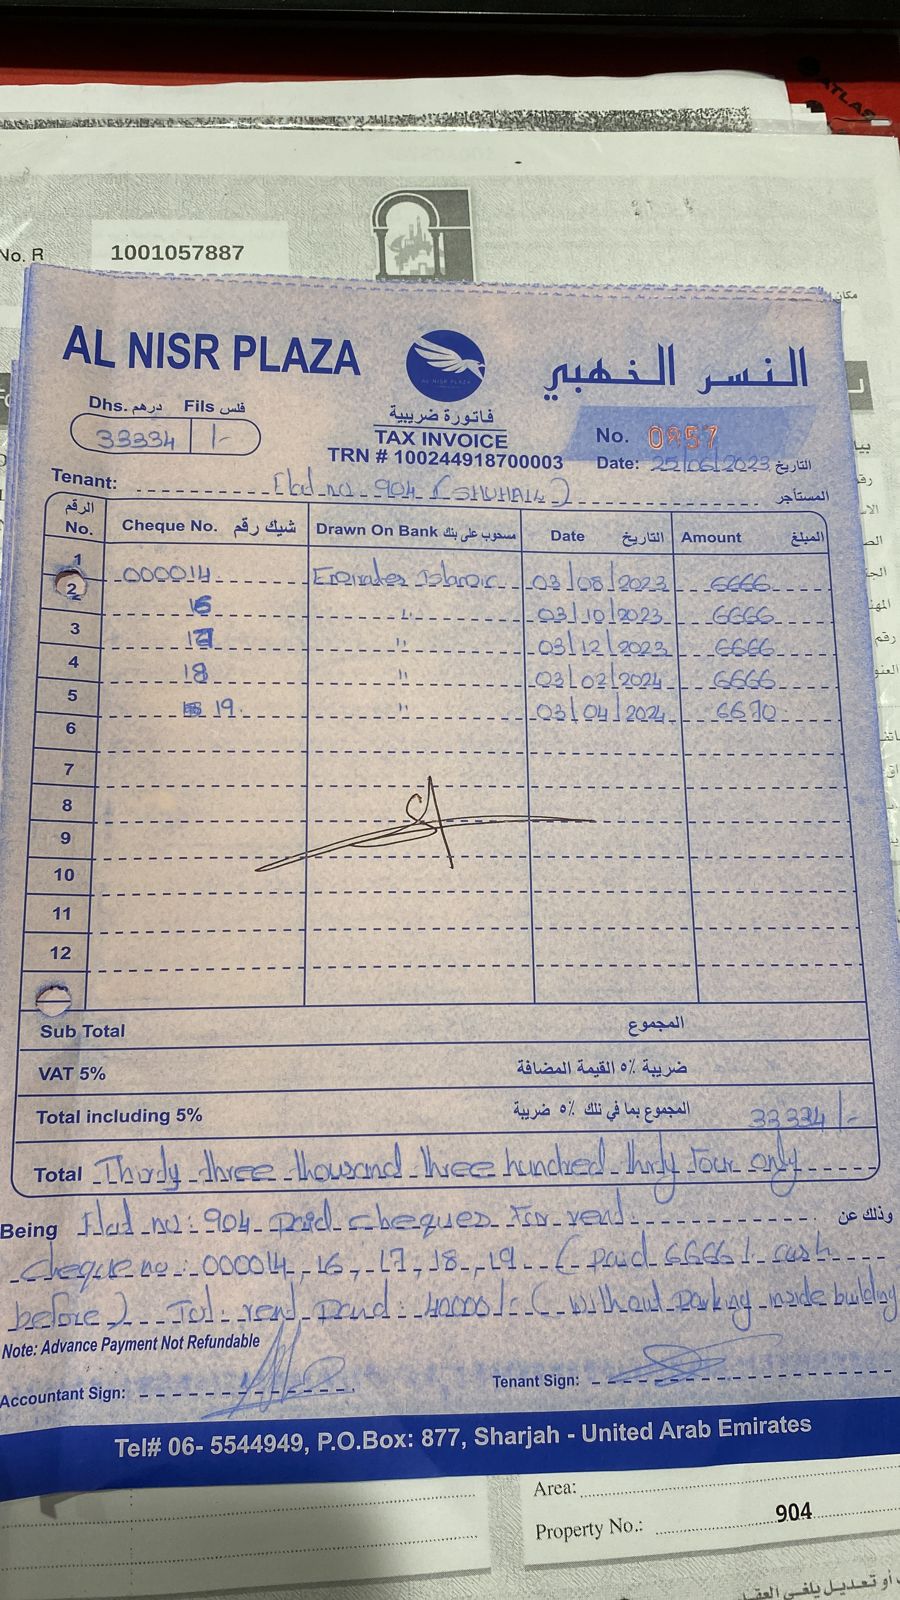 ATLAS
No. R 1001057887
مكان
AL NISR PLAZA
AL NISR PLAZA
النسر الذهبي
Dhs. درهم Fils فلس
33334 /-
فاتورة ضريبية
TAX INVOICE
TRN # 100244918700003
No. 0857
Date: 25/06/2023 التاريخ
Tenant: Flat no 904 (SHUHAIL) المستأجر
الرقم No. Cheque No. شيك رقم Drawn On Bank مسحوب على بنك Date التاريخ Amount المبلغ
1 000014 Emirates Islamic 03/08/2023 6666
2 16 " 03/10/2023 6666
3 17 " 03/12/2023 6666
4 18 " 03/02/2024 6666
5 19 " 03/04/2024 6670
6
7
8
9
10
11
12
Sub Total المجموع
VAT 5% ضريبة ٥٪ القيمة المضافة
Total including 5% المجموع بما في ذلك ٥٪ ضريبة 33334/-
Total Thirdy three thousand three hundred thirdy four only
Being Flad no: 904 paid cheques For rent. وذلك عن
cheque no: 000014, 16, 17, 18, 19 (paid 6666/- cash
before) Tot: rent paid: 40000/- (without parking inside building
Note: Advance Payment Not Refundable
Accountant Sign: Tenant Sign:
Tel# 06- 5544949, P.O.Box: 877, Sharjah - United Arab Emirates
Area:
Property No.: 904
أو تعديل يلغي العقد